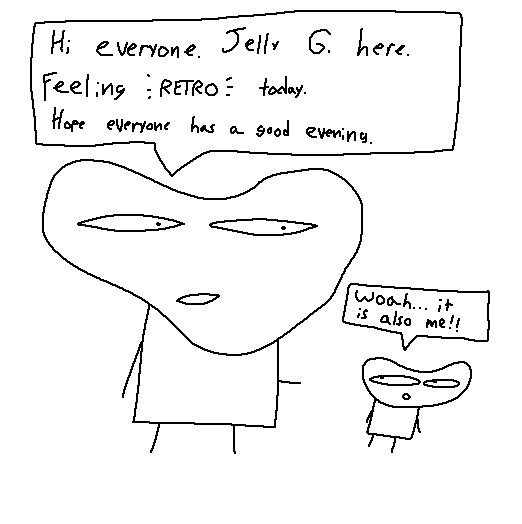 Hi everyone. Jelly G. here.
Feeling RETRO today.
Hope everyone has a good evening.
Woah... it
is also me!!